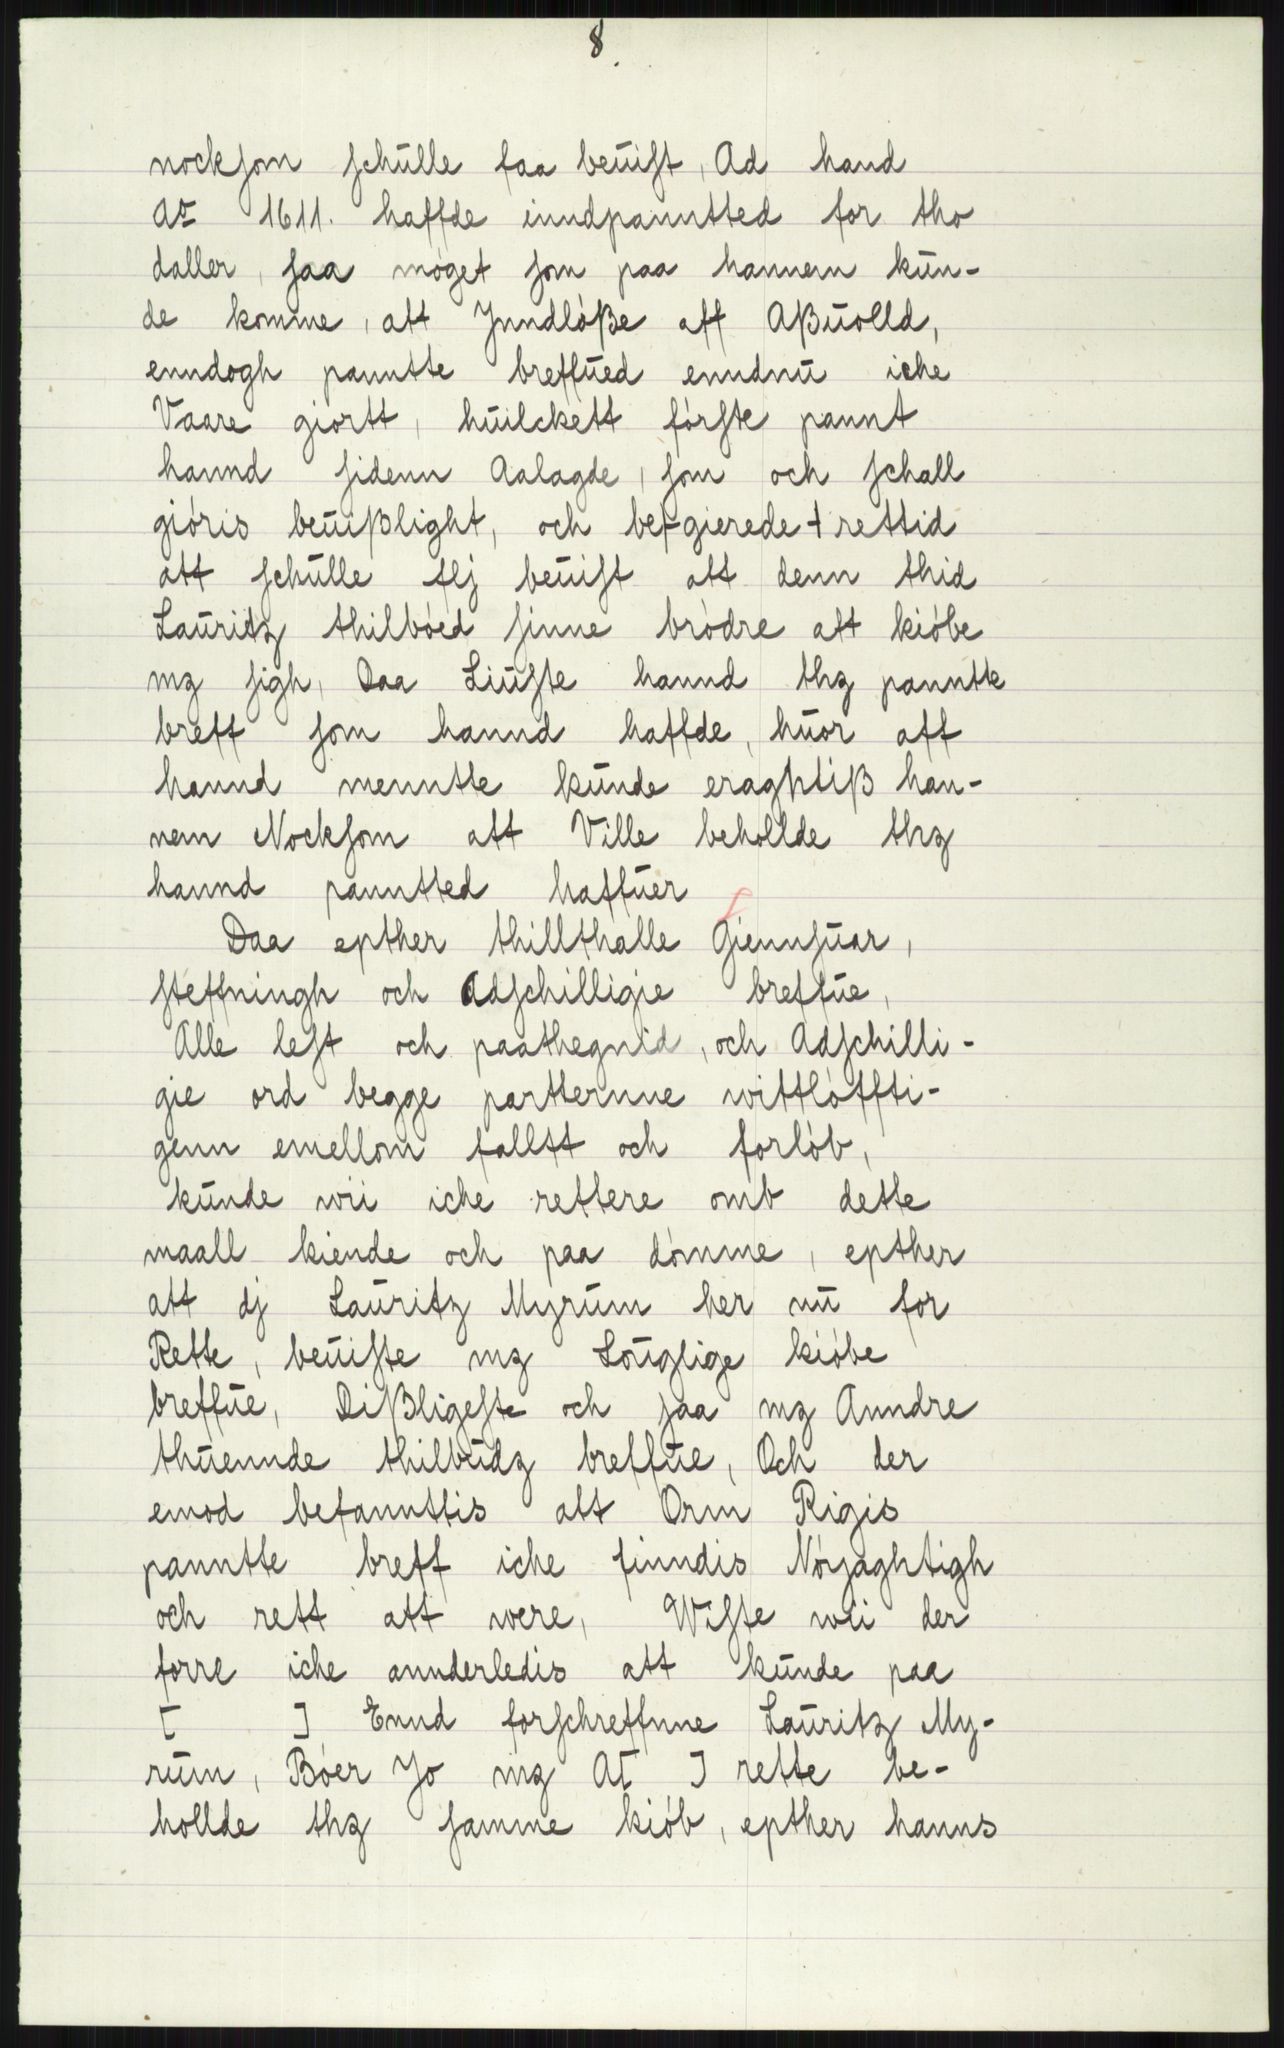 8.
nocksom schulle faa beuist, Ad hand
Ao 1611. haffde inndpanntted for tho
daller, saa møget som paa hannem kun-
de komme, att Jnndløße aff Aßuolld,
enndogh panntte breffued enndnu iche
Vaare giortt, huilckett første pannt
hannd sidenn Aalagde, som och schall
giøris beuißlight, och be[gierede] rettid
att schulle flj beuist att denn thid
Lauritz thilbøed sinne brødre att kiøbe
mz sigh, Daa Liuste hannd thz panntte
breff som hannd haffde, huor aff
hannd menntte kunde eraghtiß han-
nem Nocksom att Ville behollde thz
hannd panntted haffuer
Daa epther thillthalle Giennsuar,
steffningh och Adschilligie breffue,
Alle lest och paathegnid, och Adschilli-
gie ord begge partternne wittløffti-
genn emellom falltt och forløb,
kunde wii iche rettere omb dette
maall kiende och paa dømme, epther
att dj Lauritz Myrum her nu for
Rette, beuiste mz Louglige kiøbe
breffue, Dißligeste och saa mz Anndre
thuennde thilbudz breffue, Och der
emod befannttis att Orm Rigis
panntte breff iche finndis Nøyaghtigh
och rett att were, Wiste wii der
forre iche annderledis att kunde paa
[ ] Ennd forschreffnne Lauritz My-
rum, Bøer Jo mz A[ ] rette be-
hollde thz samme kiøb, epther hanns